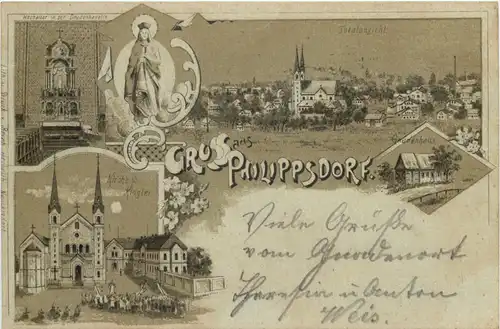 Hochaltar in der Gnadenkapelle
Totalansicht
GRUSS aus
PHILIPPSDORF.
Kirche u.
Kloster
Viele Grüße
vom Gnadenort
Theresia u Anton
Weis.